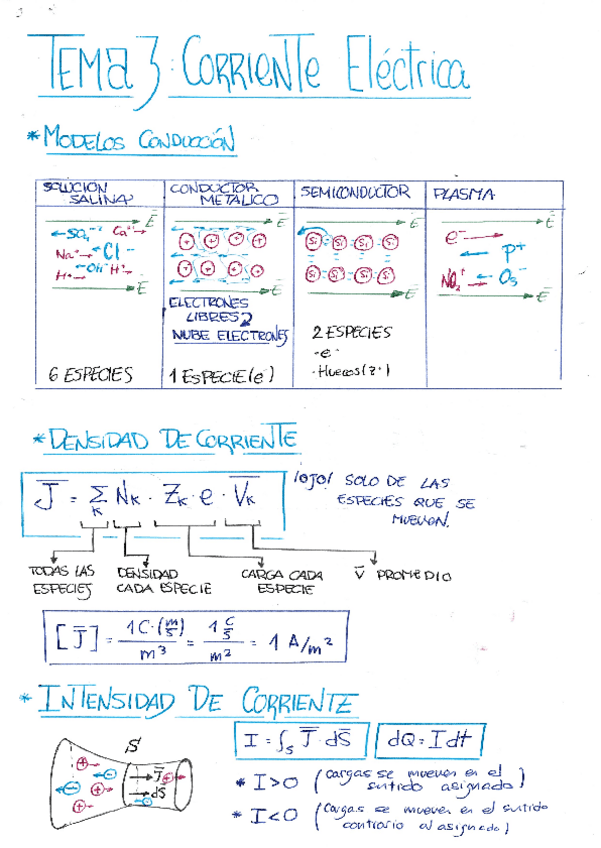 TEMA 3: CORRIENTE ELÉCTRICA
* MODELOS CONDUCCIÓN
SOLUCIÓN SALINA
CONDUCTOR METÁLICO
SEMICONDUCTOR
PLASMA
E E E E
SO4-- Ca++
Na+ Cl-
OH- H+
H+
E
+ + + +
+ + + +
E
Si Si Si Si
Si Si Si Si
E
e-
P+
NO2+ O3-
E
ELECTRONES
LIBRES
NUBE ELECTRONES
2 ESPECIES
- e-
6 ESPECIES
1 ESPECIE (e-)
* DENSIDAD DE CORRIENTE
J = Σk Nk · Zk · e · Vk
¡OJO! SOLO DE LAS
ESPECIES QUE SE
MUEVEN.
TODAS LAS ESPECIES
DENSIDAD CADA ESPECIE
CARGA CADA ESPECIE
V PROMEDIO
[J] = 1C·(m/s) / m³ = 1 C/s / m² = 1 A/m²
* INTENSIDAD DE CORRIENTE
S
J
dS
I = ∫s J · dS
dQ = I dt
* I>0 (cargas se mueven en el
sentido asignado)
* I<0 (Cargas se mueven en el sentido
contrario al asignado)